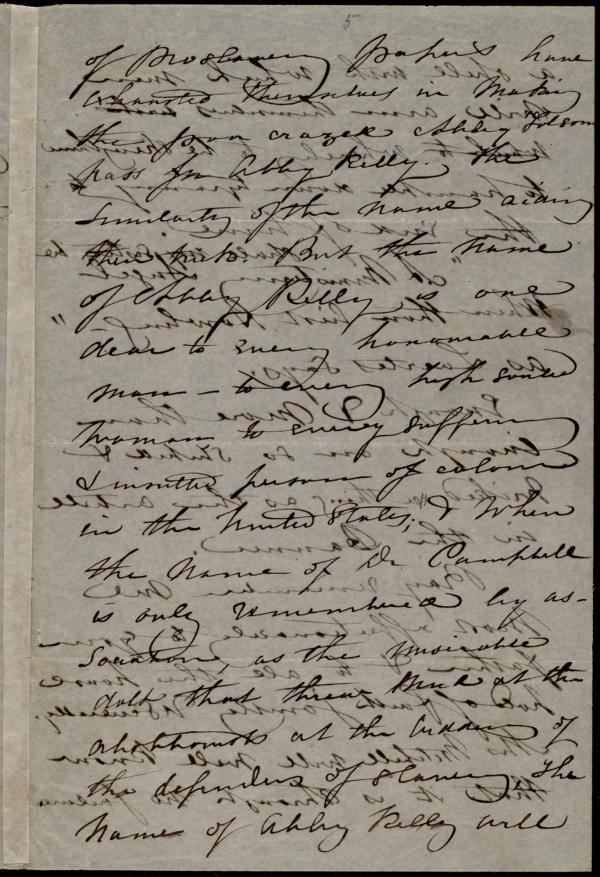 5
of Proslavery papers have
exhausted themselves in making
the poor crazed Abby Folsom
pass for Abby Kelly. The
similarity of the name aiding
the But the name
of Abby Kelly is one
dear to every honourable
man – to every high souled
woman to every suffering
& insulted person of colour
in the United States; & when
the name of Dr Campbell
is only remembered by as-
sociation, as the miserable
dolt that threw mud at the
abolitionists at the bidding of
the defenders of slavery, the
name of Abby Kelly will